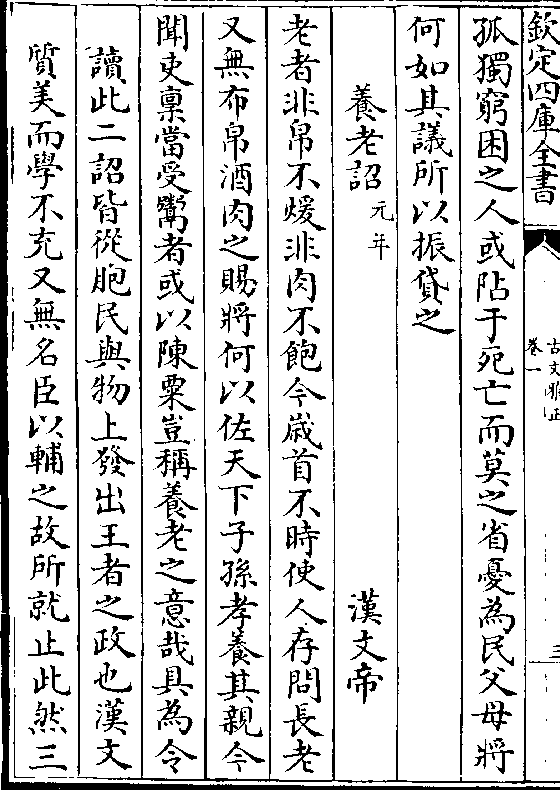 欽定四庫全書
古文雅正
卷一
三
孤獨窮困之人或阽于死亡而莫之省憂為民父母將
何如其議所以振貸之
養老詔元年
漢文帝
老者非帛不煖非肉不飽今歲首不時使人存問長老
又無布帛酒肉之賜將何以佐天下子孫孝養其親今
聞吏稟當受鬻者或以陳粟豈稱養老之意哉具為令
讀此二詔皆從胞民與物上發出王者之政也漢文
質美而學不充又無名臣以輔之故所就止此然三